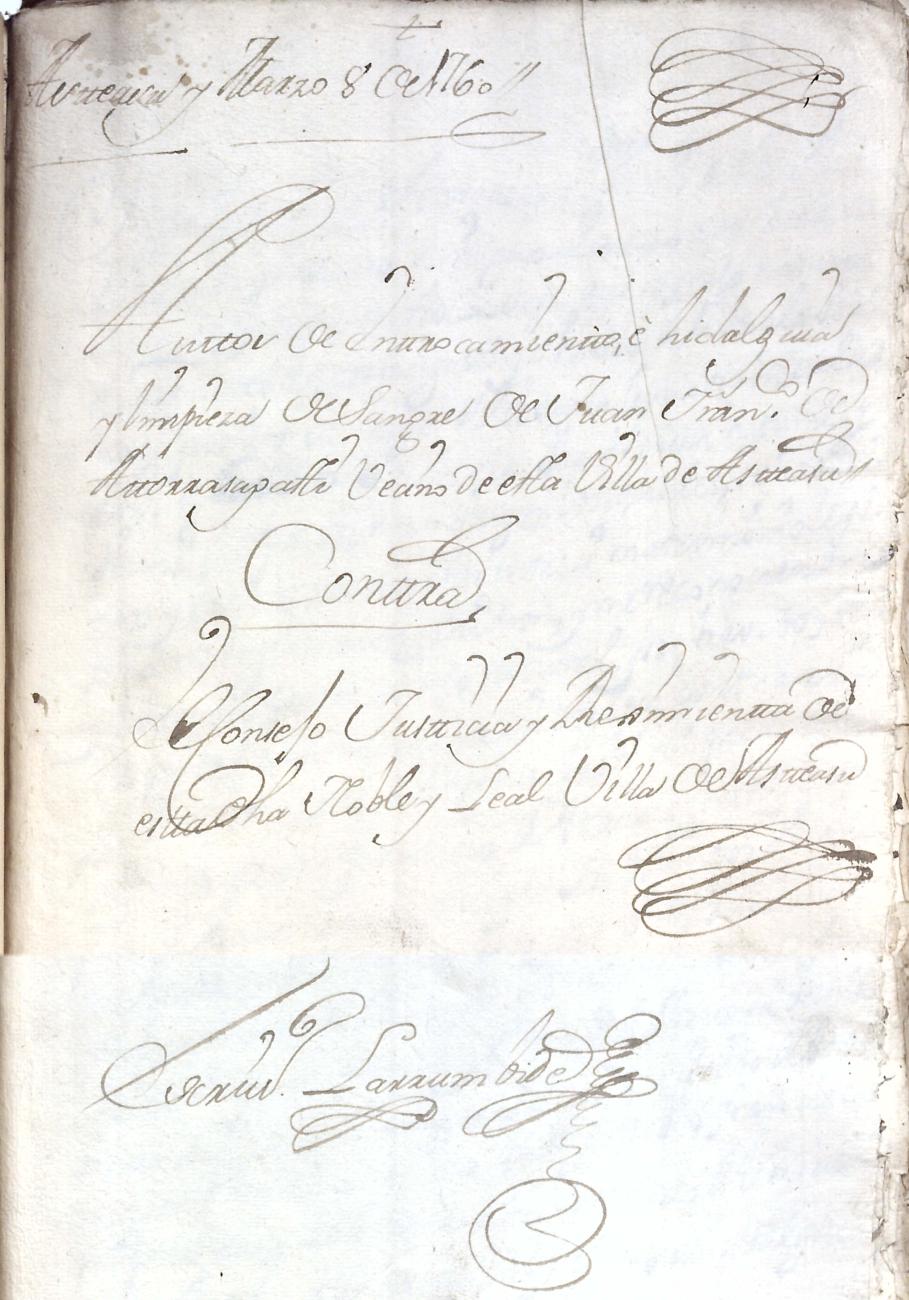 y Marzo 8 de 1760
Auttos de Enttrocamientto, è hidalguia
y limpieza de Sangre de Juan Fran.co de
Attorrasagasti Vecino de esta Villa de Asteasu
Conttra
El Consejo Justticia y Reximientto de
estta dha Noble y Leal Villa de Asteasu
Escriv.no Larrumbide